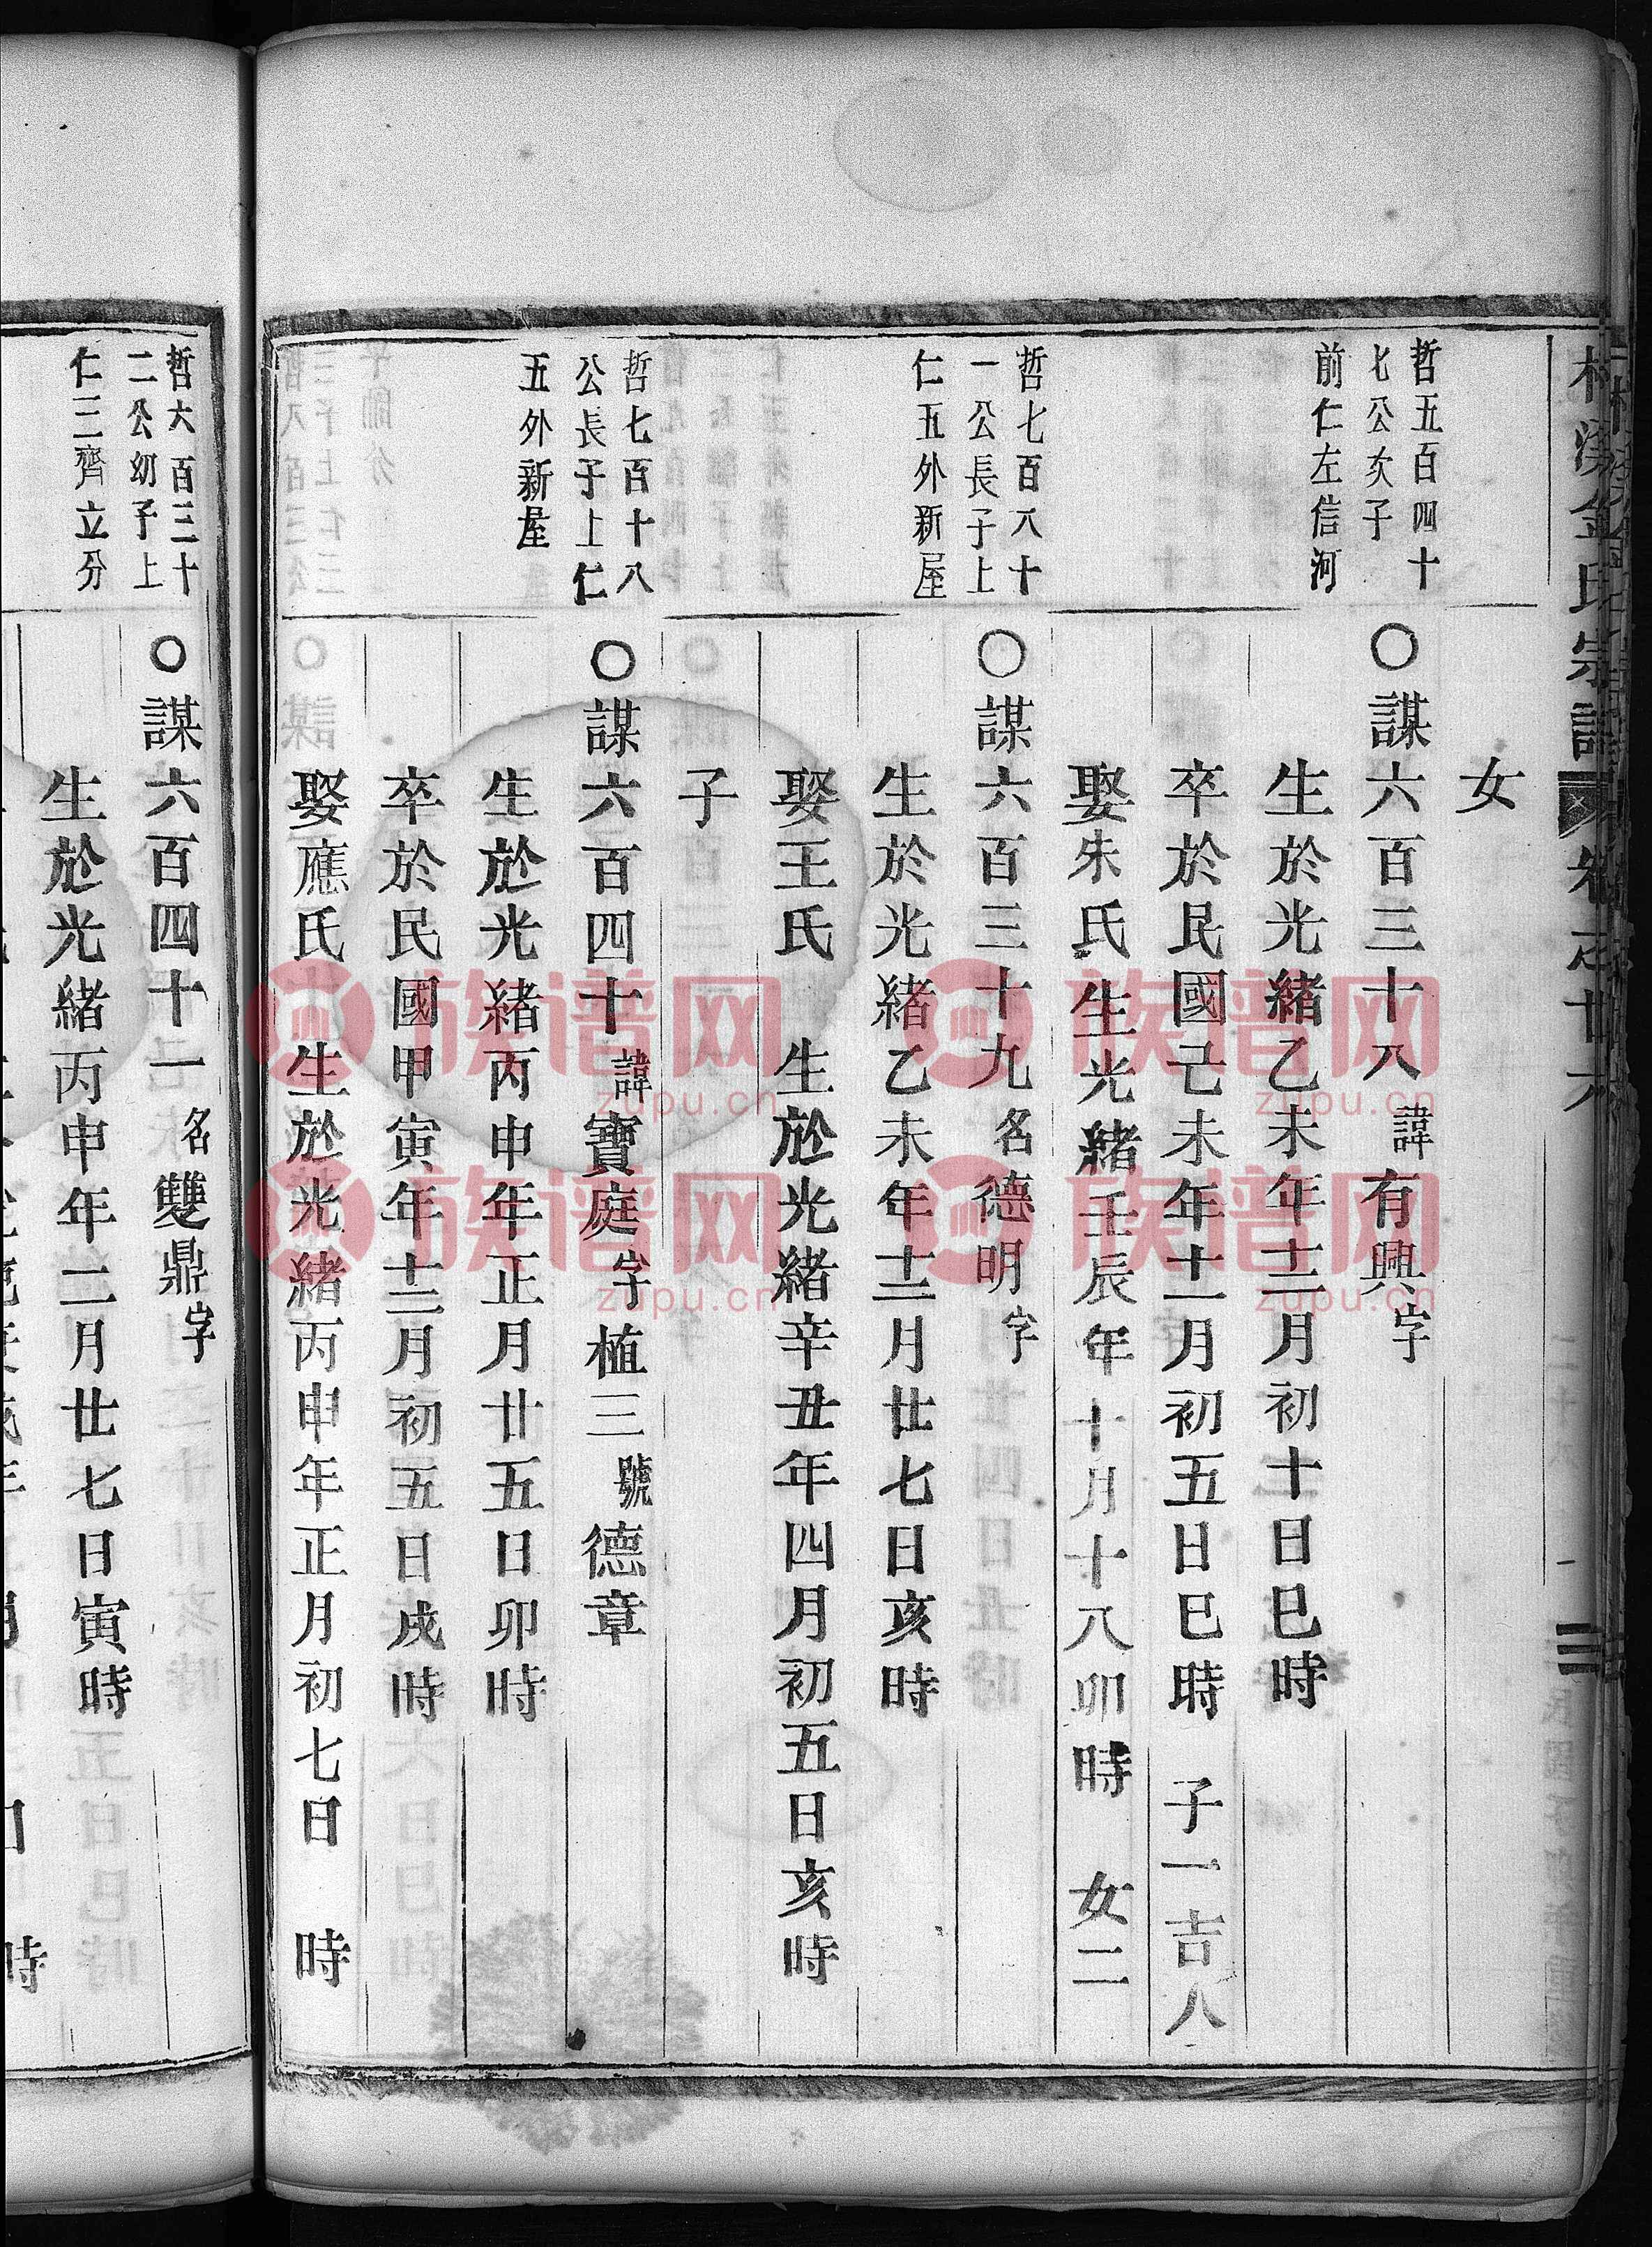 溪金氏宗譜 卷之廿六
二
女
哲五百四十
七公次子
前仁左信河
〇謀六百三十八諱有興字
生於光緒乙未年十二月初十日巳時
卒於民國己未年十一月初五日巳時 子一吉人
娶朱氏生光緒壬辰年十月十八卯時 女二
哲七百八十
一公長子上
仁五外新屋
〇謀六百三十九名德明字
生於光緒乙未年十二月廿七日亥時
娶王氏 生於光緒辛丑年四月初五日亥時
子
哲七百十八
公長子上仁
五外新屋
〇謀六百四十諱寶庭字植三號德章
生於光緒丙申年正月廿五日卯時
卒於民國甲寅年十二月初五日戌時
娶應氏 生於光緒丙申年正月初七日 時
哲大百三十
二公幼子上
仁二齊立分
〇謀六百四十一名雙鼎字
生於光緒丙申年二月廿七日寅時
時
族谱网
zupu.cn
族谱网
zupu.cn
族谱网
zupu.cn
族谱网
zupu.cn